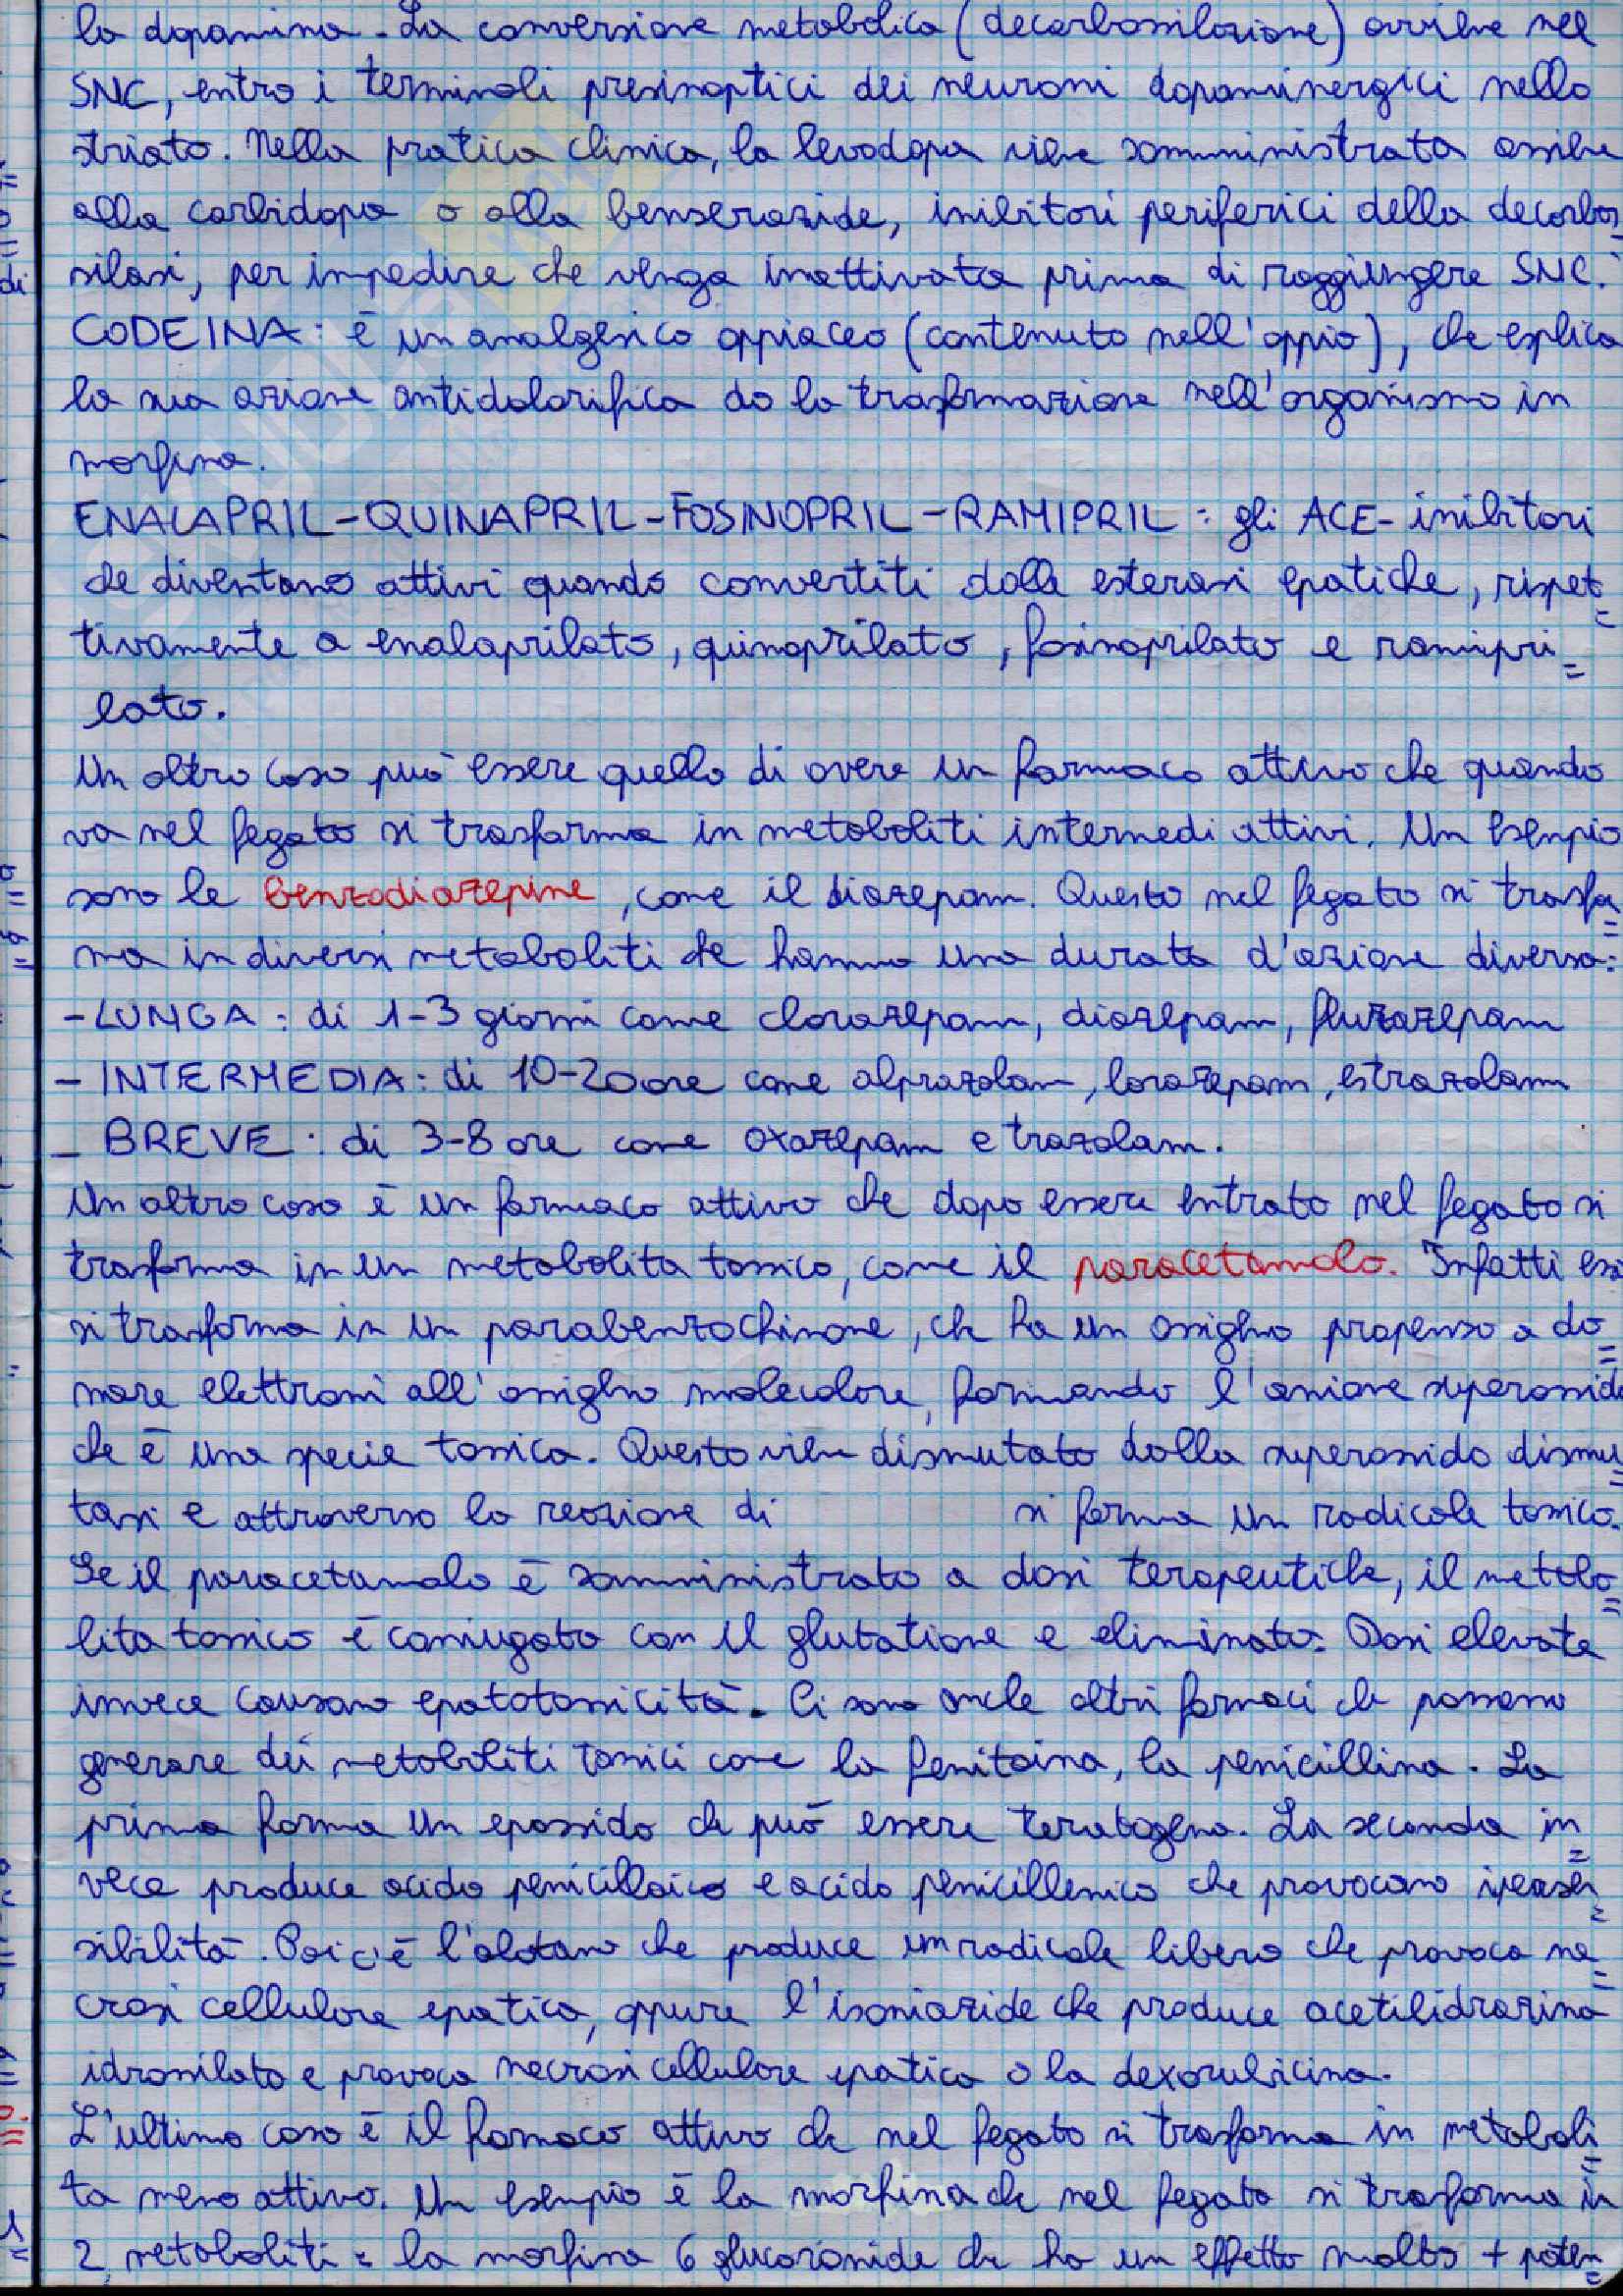 la dopamina. La conversione metabolica (decarbossilazione) avviene nel
SNC, entro i terminali presinaptici dei neuroni dopaminergici nello
striato. Nella pratica clinica, la levodopa viene somministrata assieme
alla carbidopa o alla benserazide, inibitori periferici della decarbos
silasi, per impedire che venga inattivata prima di raggiungere SNC.
CODEINA: è un analgesico oppiaceo (contenuto nell'oppio), che esplica
la sua azione antidolorifica do la trasformazione nell'organismo in
morfina.
ENALAPRIL-QUINAPRIL-FOSINOPRIL-RAMIPRIL: gli ACE-inibitori
che diventano attivi quando convertiti dalle esterasi epatiche, rispet
tivamente a enalaprilato, quinaprilato, fosinaprilato e ramipri
lato.
Un altro caso può essere quello di avere un farmaco attivo che quando
va nel fegato si trasforma in metaboliti intermedi attivi. Un esempio
sono le benzodiazepine, come il diazepam. Questo nel fegato si trasfor
ma in diversi metaboliti che hanno una durata d'azione diversa:
-LUNGA: di 1-3 giorni come clorazepam, diazepam, flurazepam
- INTERMEDIA: di 10-20 ore come alprazolam, lorazepam, estrazolam
- BREVE: di 3-8 ore come oxazepam e trazolam.
Un altro caso è un farmaco attivo che dopo essere entrato nel fegato si
trasforma in un metabolita tossico, come il paracetamolo. Infatti esso
si trasforma in un parabenzochinone, che ha un ossigeno propenso a do
nare elettroni all'ossigeno molecolare, formando l'anione superossido
che è una specie tossica. Questo viene dismutato dalla superossido dismu
tasi e attraverso la reazione di si forma un radicale tossico.
Se il paracetamolo è somministrato a dosi terapeutiche, il metabo
lita tossico è coniugato con il glutatione e eliminato. Dosi elevate
invece causano epatotossicità. Ci sono anche altri farmaci che possono
generare dei metaboliti tossici come la fenitoina, la penicillina. La
prima forma un epossido che può essere teratogeno. La seconda in
vece produce acido penicilloico e acido penicillenico che provocano ipersen
sibilità. Poi c'è l'alotano che produce un radicale libero che provoca ne
crosi cellulare epatica, oppure l'isoniazide che produce acetilidrazina
idrossilata e provoca necrosi cellulare epatica o la dexorubicina.
L'ultimo caso è il farmaco attivo che nel fegato si trasforma in metaboli
ta meno attivo. Un esempio è la morfina che nel fegato si trasforma in
2 metaboliti: la morfina 6 glucoronide che ha un effetto molto + poten